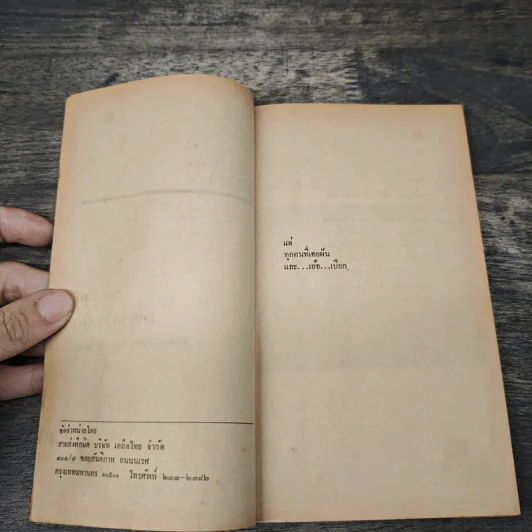 จัดจำหน่ายโดย
สายส่งศึกษิต บริษัท เคล็ดไทย จำกัด
๓๑๓/๗ ซอยสันติภาพ ถนนนเรศ
กรุงเทพมหานคร ๑๐๕๐๐ โทรศัพท์ ๒๓๓-๒๓๘๒
แด่
ทุกคนที่เคยฝัน
และ...เอ้อ...เปียก